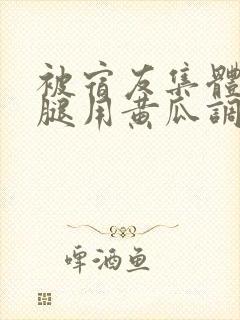 被宿友集體
腿用黄瓜調
啤酒鱼